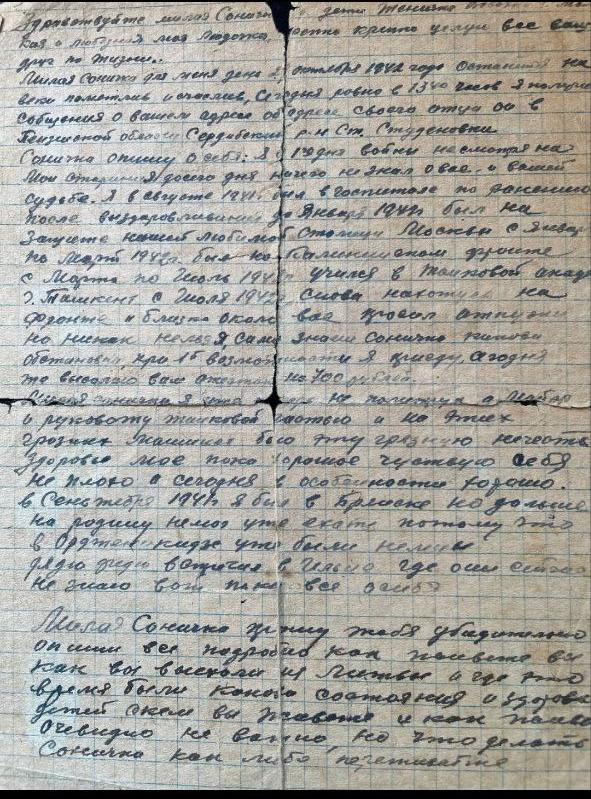 Здравствуйте милая Соничка дети Женичка
и любимая моя Людочка, крепко крепко целую вас ваш
друг по жизни.
Милая Соничка для меня день 2 октября 1942 года останется на
веки памятлив и счастлив, сегодня ровно в 13 40 часов я получил
сообщения о вашем адресе об адресе своего отца он в
Пензенской области Сердобский р-н Ст. Студеновка
Соничка опишу о себе: Я с 1 го дня войны несмотря на
мои старания до сего дня ничего не знал о вас и вашей
судьбе. Я в августе 1941г был в госпитале по ранению
после выздоровливания до Января 1942г был на
Защите нашей любимой столицы Москвы с Января
по Март 1942г был на Калининском фронте
с Марта по Июль 1942г учился в танковой акаде
г. Ташкент с Июля 1942г снова нахожусь на
фронте и близко около вас провел
но никак нельзя, сама знаеш Соничка какова
обстановка, при 1й возможности я приеду. Сегодня
же высылаю вам 700 рублей.
Милая Соничка я уже не а Майор
и руковожу танковой частью и на этих
грозных машинах бью эту грязную нечесть
Здоровье мое пока хорошое чуствую себя
не плохо а сегодня в особенности хорошо.
в Сентября 1941г я был в Брянске но дольше
на родину немог уже ехать потому что
в Орджоникидзе уже были немцы
встичал в где они сейчас
не знаю вот пока все о себе
Милая Соничка прошу тебя убидительно
опиши все подробно как поживаете вы
как вы выехали из Литвы и где это
время были каково состояния и здоровье
детей с кем вы живете и как
Очевидно не важно, но что делать
Соничка как либо переживайте